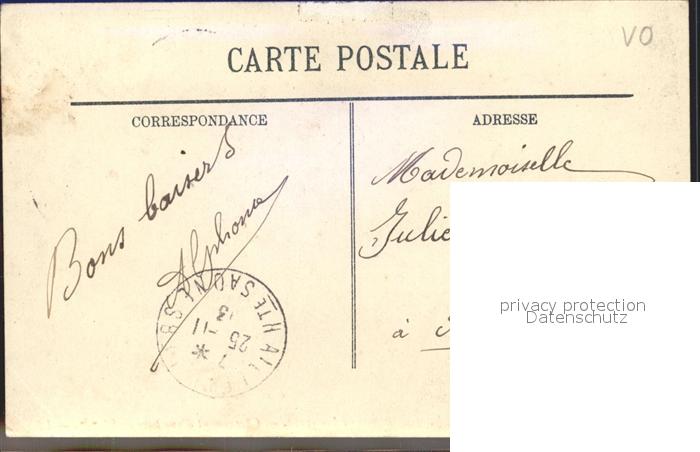 VO
CARTE POSTALE
CORRESPONDANCE
ADRESSE
Bons baisers
Alphonse
Mademoiselle
Julie
à
HTE SAONE
7
25-11
13
privacy protection
Datenschutz